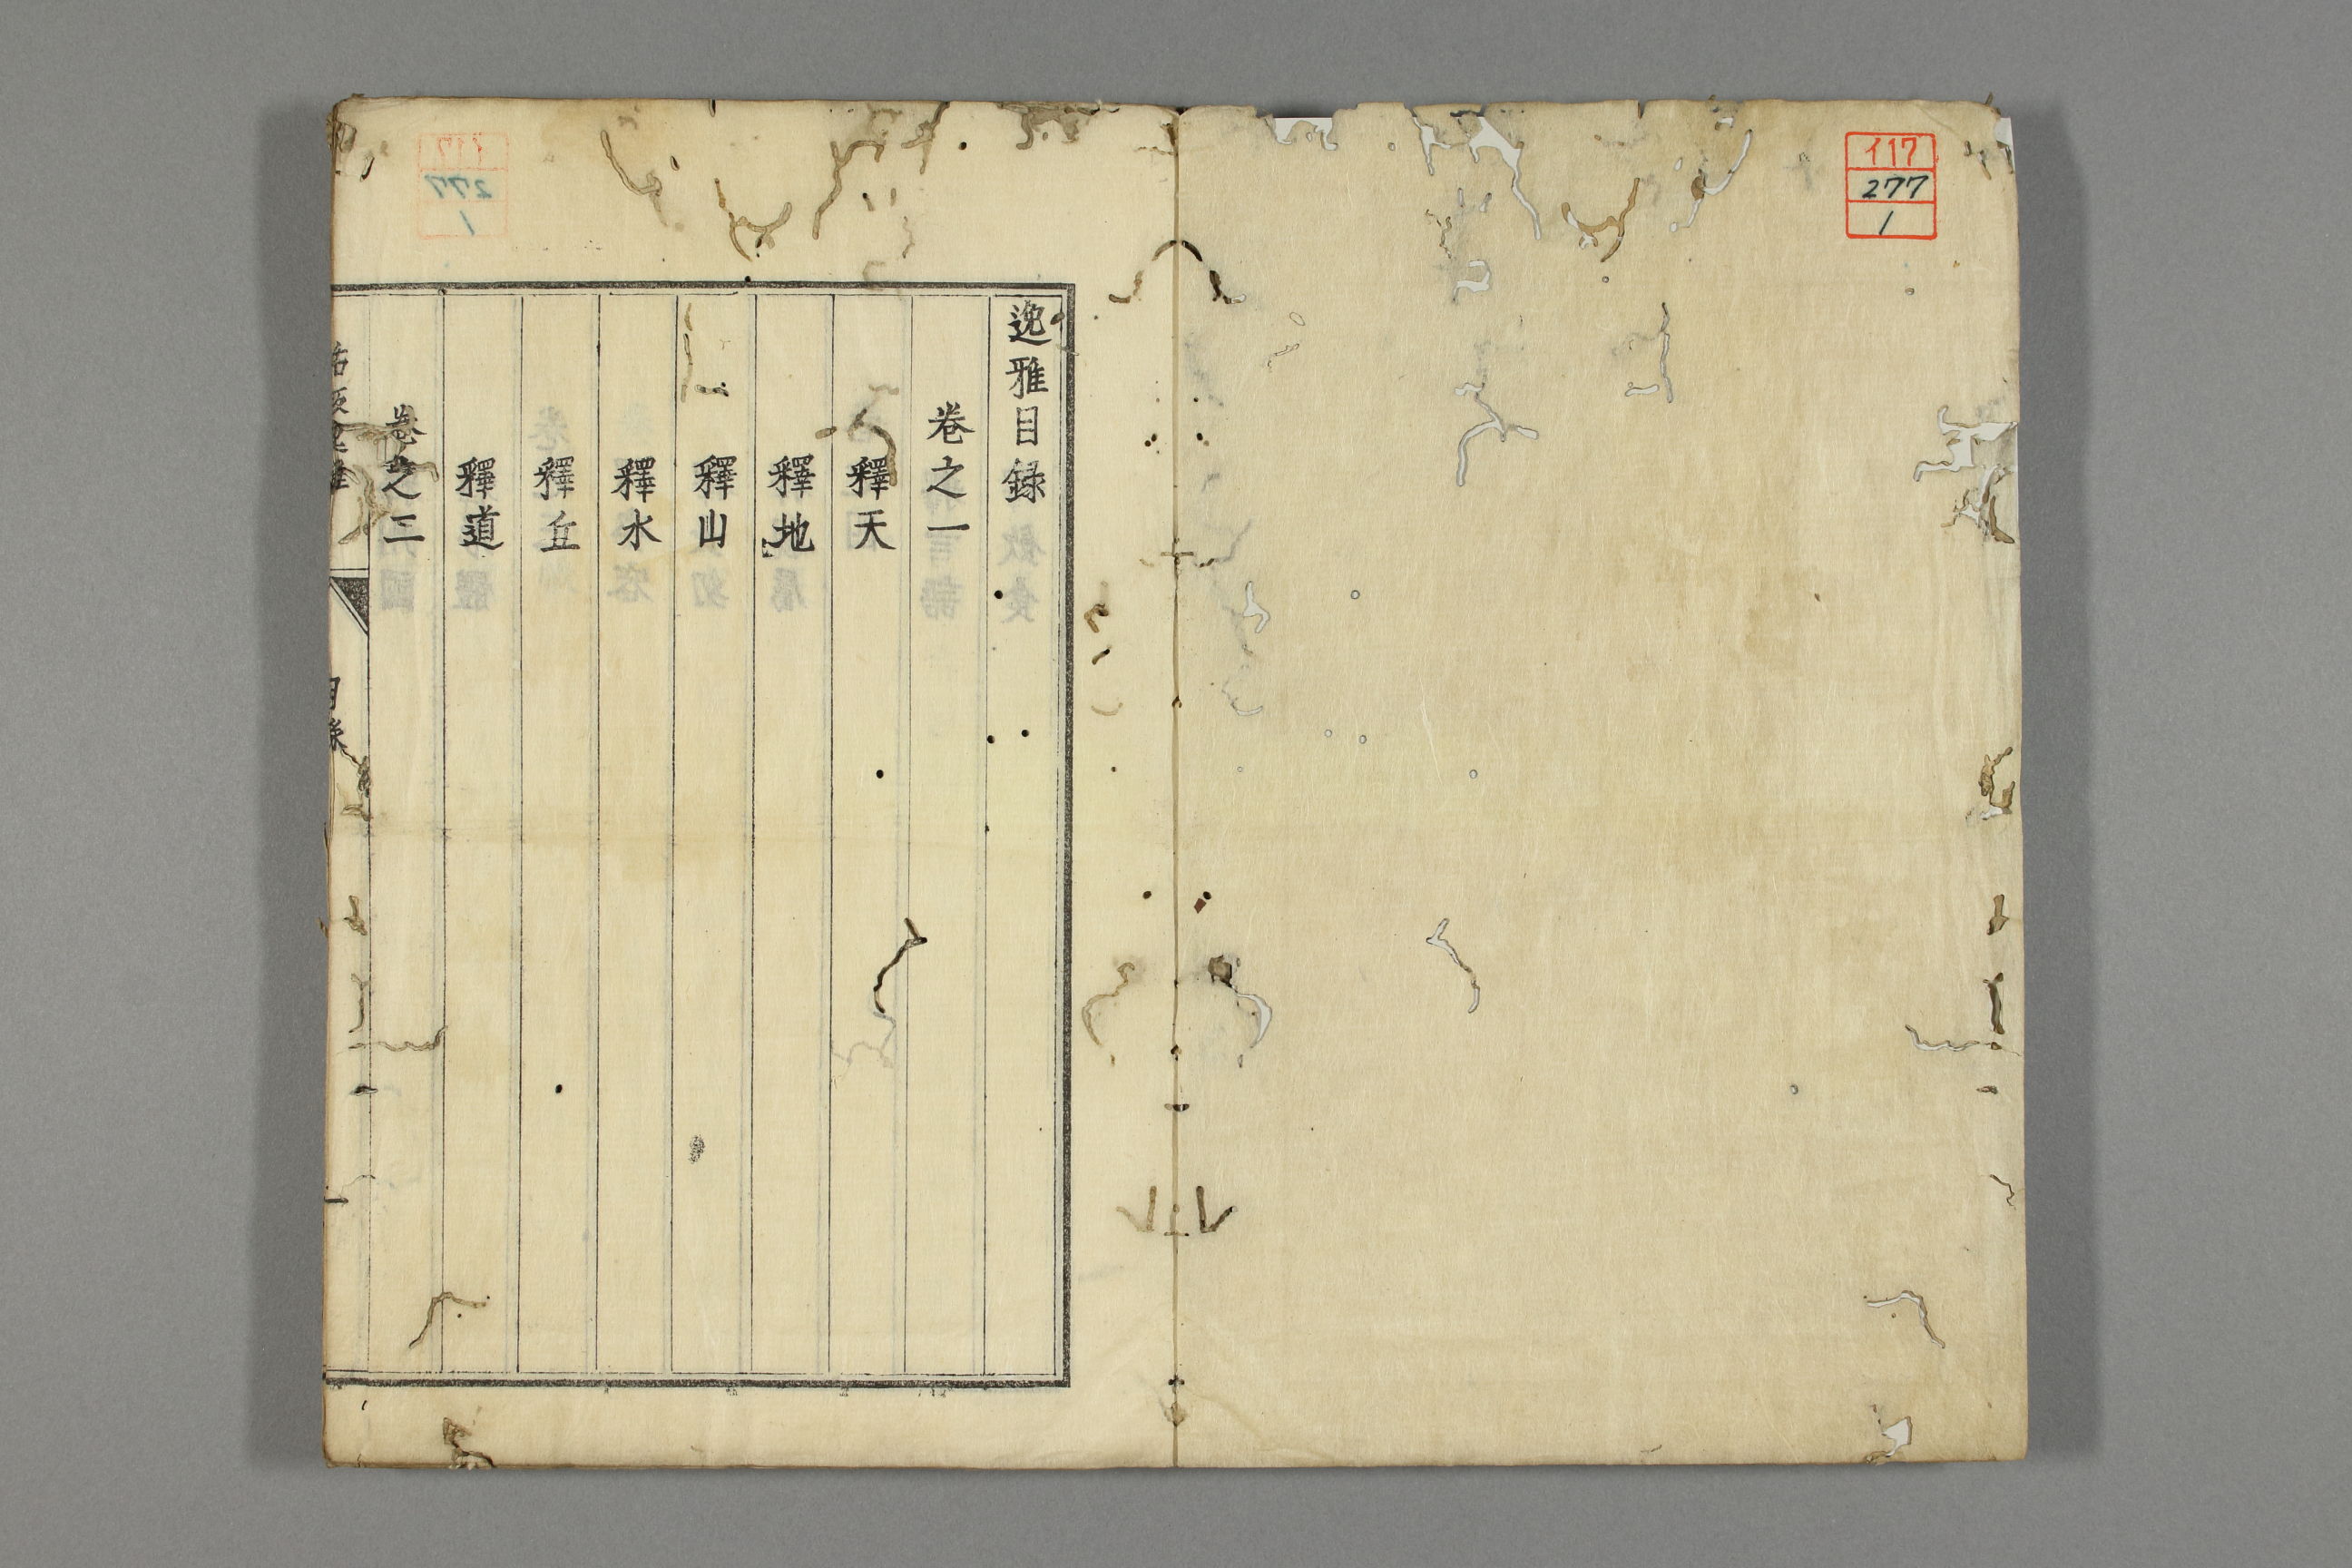 イ17
277
1
逸雅目録
卷之一
釋天
釋地
釋山
釋水
釋丘
釋道
卷之二
目録